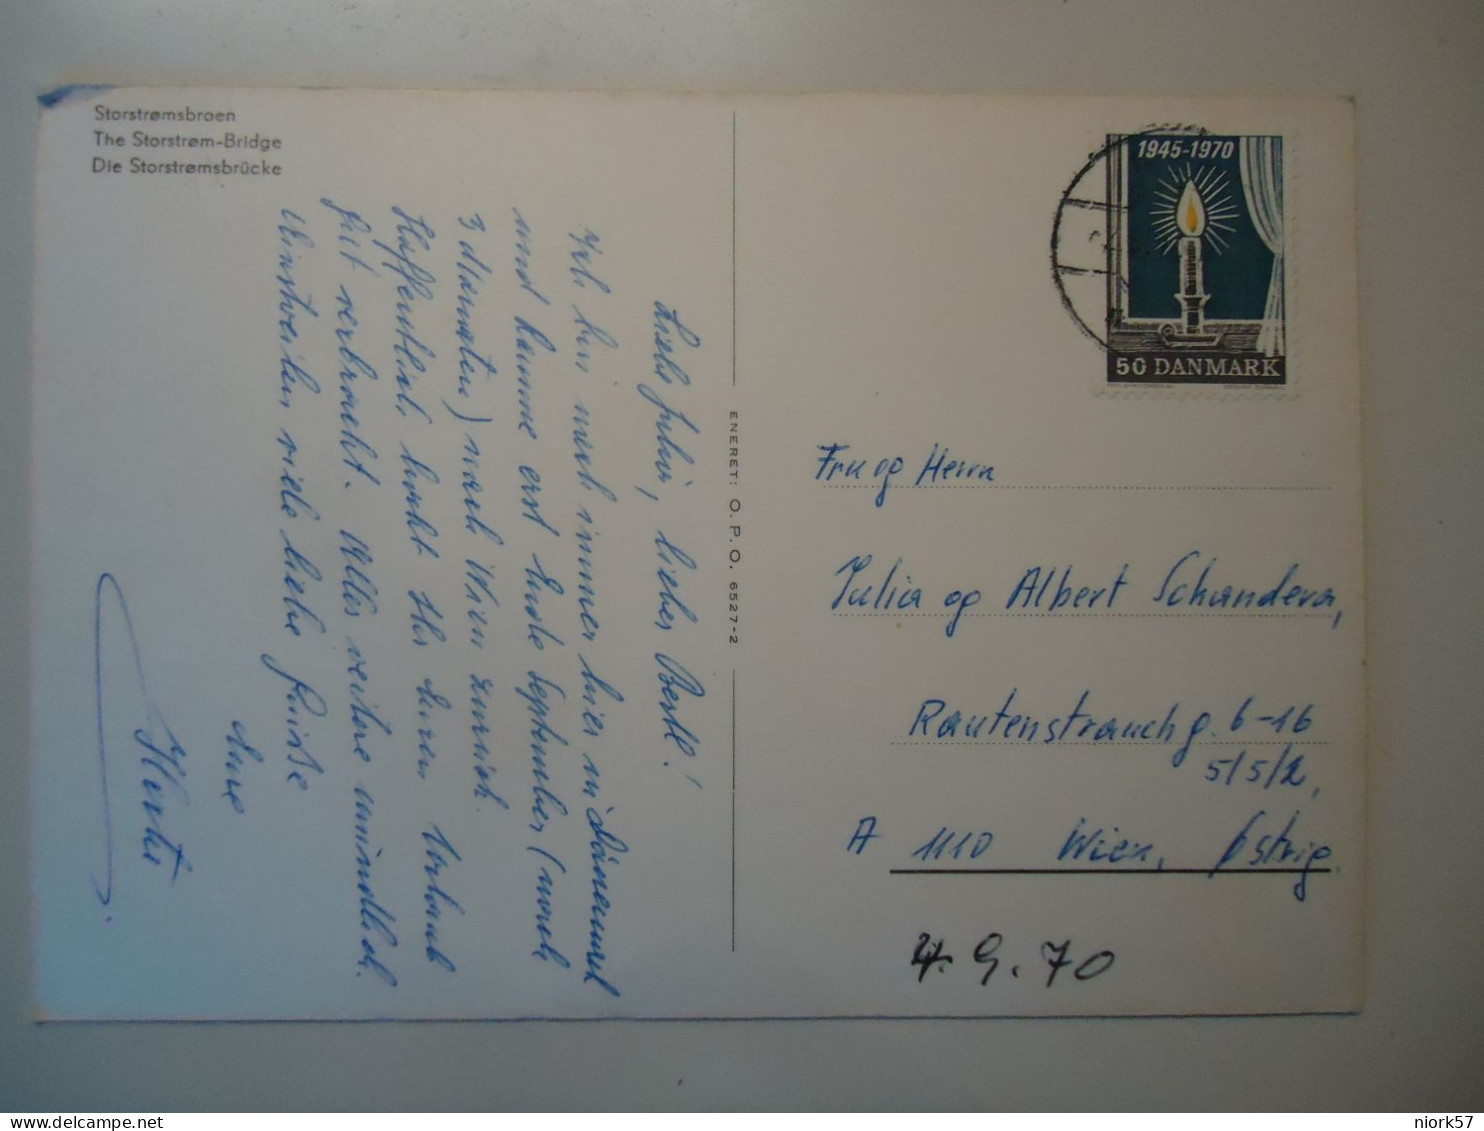 Storstrømsbroen
The Storstrøm-Bridge
Die Storstrømsbrücke
Liebe Julia, lieber Bertl!
Ich bin noch immer hier in Dänemark
und komme erst Ende September (nach
3 Monaten) nach Wien zurück.
Hoffentlich habt Ihr Euren Urlaub
gut verbracht. Alles weitere mündlich.
Einstweilen viele liebe Grüße
Eure
Herta
ENERET: O.P.O. 6527-2
1945-1970
50 DANMARK
Fru og Herrn
Julia og Albert Schandera,
Rautenstrauchg. 6-16
5/5/2,
A 1110 Wien, Østrig.
4.9.70
niork57